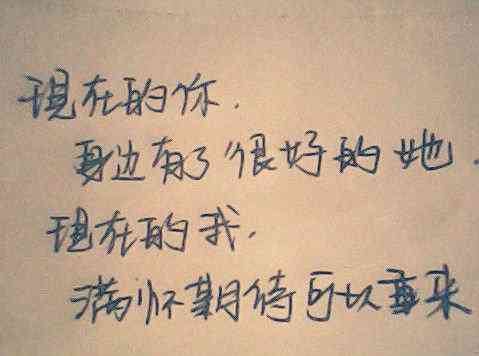 現在的你.
身边有了很好的她.
现在的我.
满怀期待可以重来